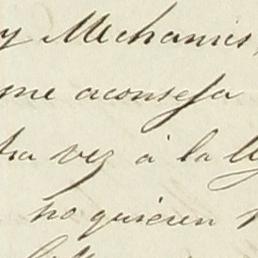 y Mechanics,
me aconseja
tra vez á la
no quieren